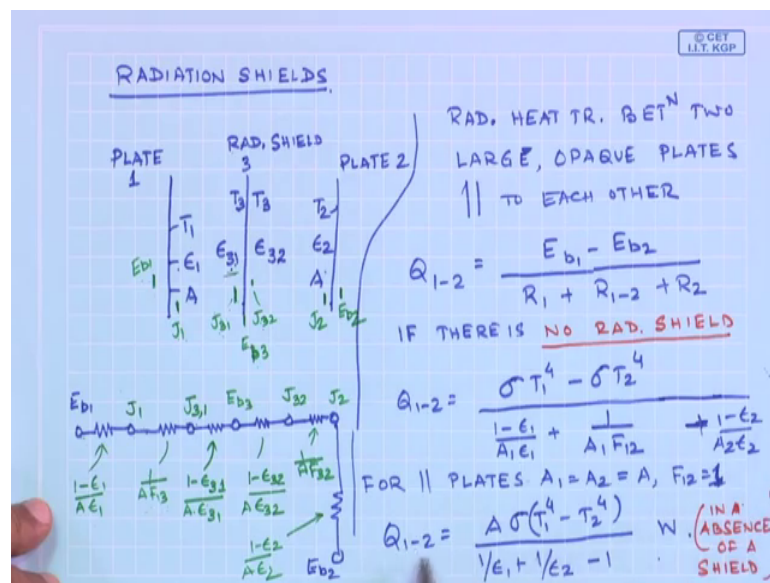 © CET
I.I.T. KGP
RADIATION SHIELDS
PLATE
1
RAD. SHIELD
3
PLATE 2
T₁
T₃ T₃
T₂
Eb1
ϵ₁
ϵ₃₁ ϵ₃₂
ϵ₂
A
A
J₁
J₃₁ J₃₂
J₂ Eb2
Eb3
Eb1 J₁ J₃,₁ Eb3 J₃₂ J₂
1-ϵ₁ / Aϵ₁
1 / AF₁₃
1-ϵ₃₁ / Aϵ₃₁
1-ϵ₃₂ / Aϵ₃₂
1 / AF₃₂
1-ϵ₂ / Aϵ₂
Eb2
RAD. HEAT TR. BETᴺ TWO
LARGE, OPAQUE PLATES
|| TO EACH OTHER
Q₁₋₂ = Eb₁ - Eb2 / R₁ + R₁₋₂ + R₂
IF THERE IS NO RAD. SHIELD
Q₁₋₂ = σT₁⁴ - σT₂⁴ / 1-ϵ₁ / A₁ϵ₁ + 1 / A₁F₁₂ + 1-ϵ₂ / A₂ϵ₂
FOR || PLATES A₁ = A₂ = A, F₁₂ = 1
Q₁₋₂ = Aσ(T₁⁴ - T₂⁴) / 1/ϵ₁ + 1/ϵ₂ - 1 W. (IN A
ABSENCE
OF A
SHIELD